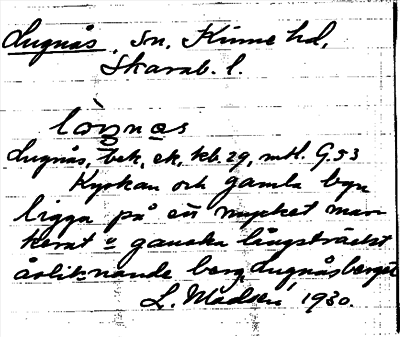 Lugnås, sn, Kinne hd,
Skarab. l.
Lugnås, bek, ek, kb. 29, mtl. G. 53
Kyrkan och gamla byn
ligga på en mycket mar
kerat o ganska långsträckt
åsliknande berg, Lugnåsberget
L. Madsen, 1930.